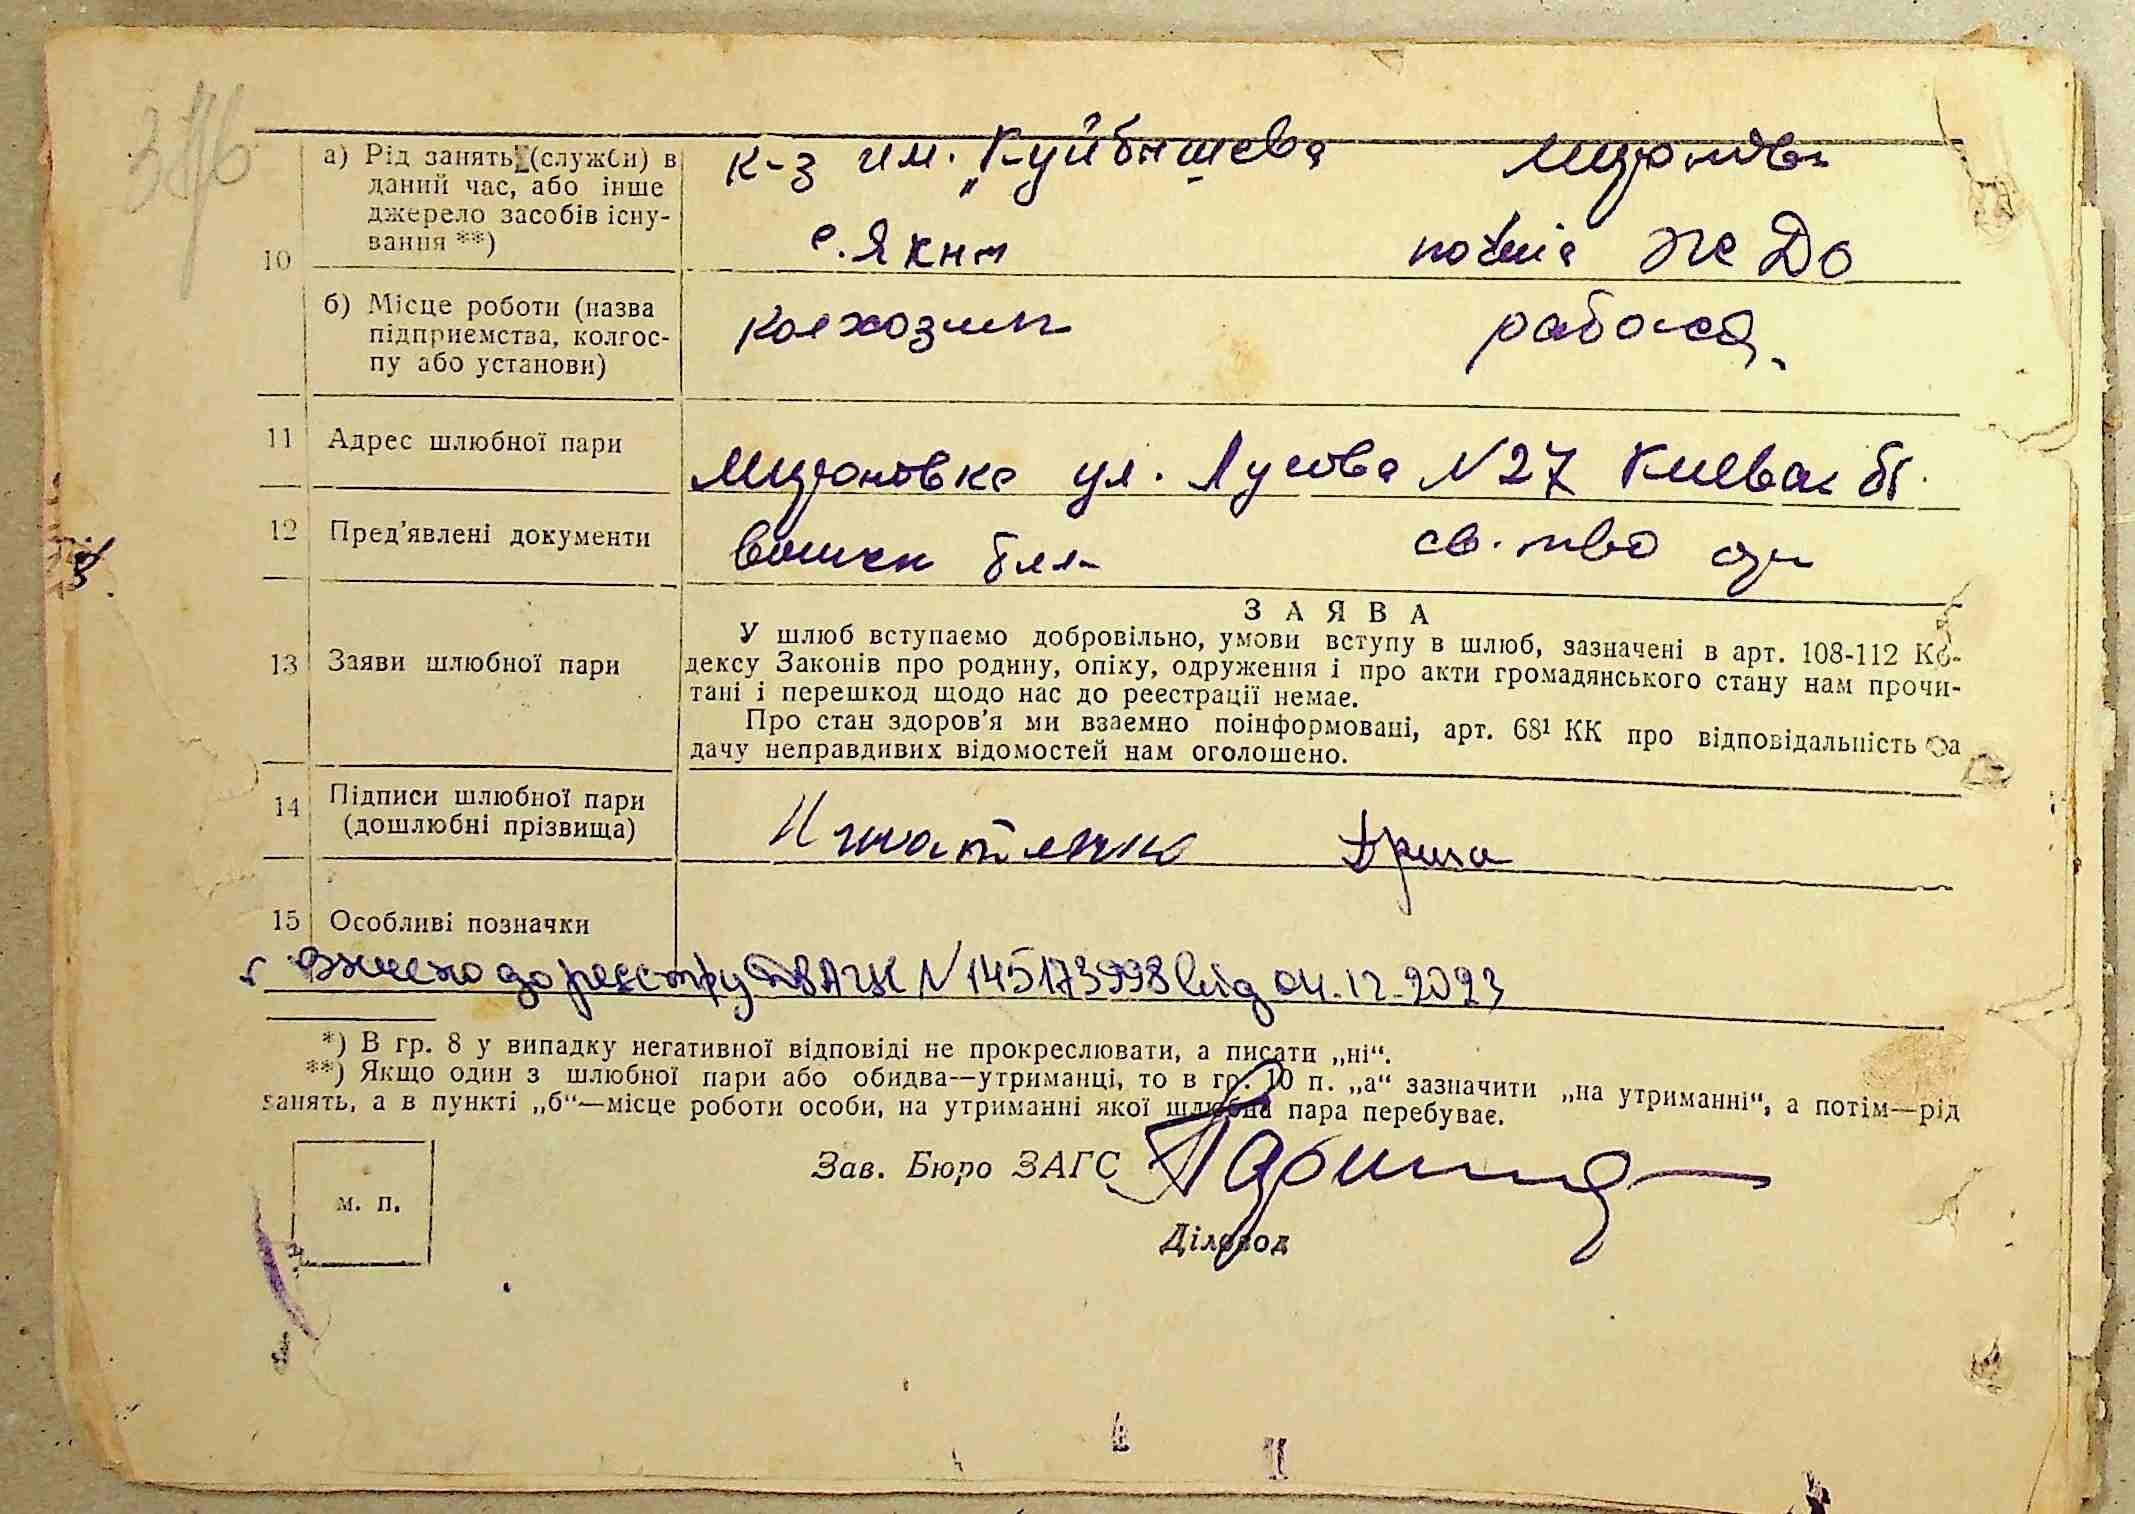 а) Рід занять (служби) в
даний час, або інше
джерело засобів існу-
вання **)
к-з им. „Куйбышева
с. Якн
ЖеДо
10
б) Місце роботи (назва
підприємства, колгос-
пу або установи)
колхозник
рабоча
11 Адрес шлюбної пари
Мироновка ул. Лусова N 27 Киевск обл.
12 Пред'явлені документи
воинск бил
св. тво
13 Заяви шлюбної пари
ЗАЯВА
У шлюб вступаємо добровільно, умови вступу в шлюб, зазначені в арт. 108-112 Ко-
дексу Законів про родину, опіку, одруження і про акти громадянського стану нам прочи-
тані і перешкод щодо нас до реєстрації немає.
Про стан здоров'я ми взаємно поінформовані, арт. 68¹ КК про відповідальність за
дачу неправдивих відомостей нам оголошено.
14 Підписи шлюбної пари
(дошлюбні прізвища)
15 Особливі позначки
внесено до реєстру ДРАЦС N 145173998 від 04.12.2023
*) В гр. 8 у випадку негативної відповіді не прокреслювати, а писати „ні“.
**) Якщо один з шлюбної пари або обидва—утриманці, то в гр. 10 п. „а“ зазначити „на утриманні“, а потім—рід
занять, а в пункті „б“—місце роботи особи, на утриманні якої шлюбна пара перебуває.
Зав. Бюро ЗАГС
м. п.
Діловод